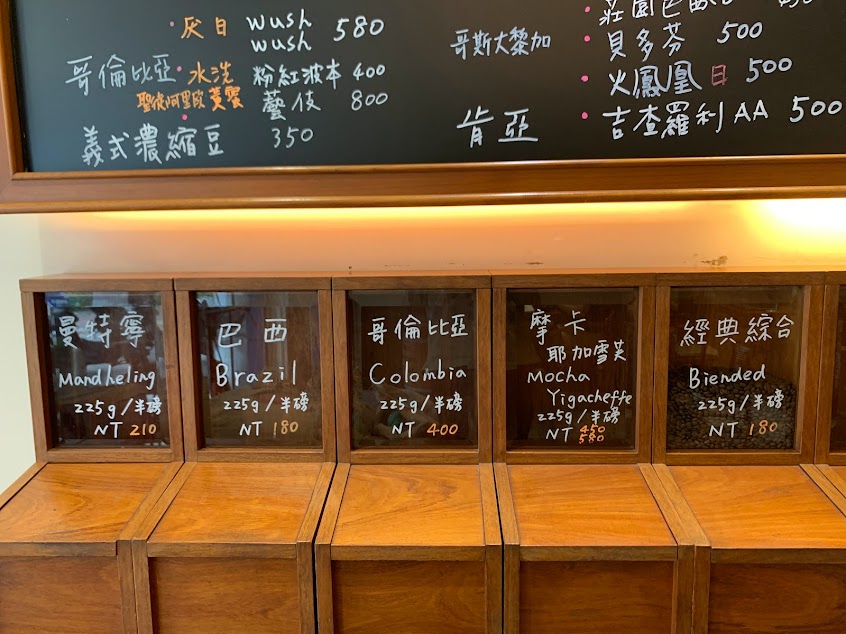 厌日 wush wush 580
哥倫比亞 水洗 粉紅波本 400
藝伎 800
義式濃縮豆 350
哥斯大黎加
貝多芬 500
火鳳凰 日 500
肯亞 吉查羅利 AA 500
曼特寧
Mandheling
225g/半磅
NT 210
巴西
Brazil
225g/半磅
NT 180
哥倫比亞
Colombia
225g/半磅
NT 400
摩卡
耶加雪芙
Mocha
Yigacheffe
225g/半磅
NT 450
580
經典綜合
Blended
225g/半磅
NT 180